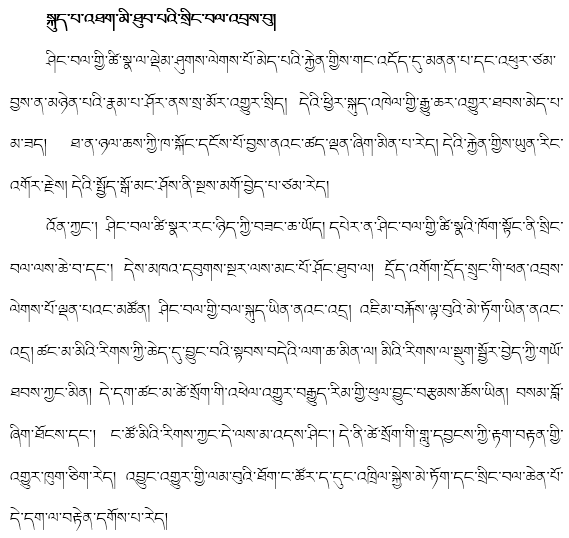 སྐུད་པ་འཐག་མི་ཐུབ་པའི་སྲིང་བལ་འབྲས་བུ།
ཤིང་བལ་གྱི་ཚི་སྣ་ལ་ལྡེམ་ཤུགས་ལེགས་པོ་མེད་པའི་རྐྱེན་གྱིས་གང་འདོད་དུ་མནན་པ་དང་འཕུར་ཙམ་
བྱས་ན་མཉེན་པའི་རྣམ་པ་ཤོར་ནས་སྲ་མོར་འགྱུར་སྲིད། དེའི་ཕྱིར་སྐུད་འཁེལ་གྱི་རྒྱུ་ཆར་འགྱུར་ཐབས་མེད་པ་
མ་ཟད། ཐ་ན་ཉལ་ཆས་ཀྱི་ཁ་སྐོང་དངོས་པོ་བྱས་ནའང་ཚད་ལྡན་ཞིག་མིན་པ་རེད། དེའི་རྐྱེན་གྱིས་ཡུན་རིང་
འགོར་རྗེས། དེའི་སྤྱོད་སྒོ་མང་ཤོས་ནི་སྔས་མགོ་བྱེད་པ་ཙམ་རེད།
འོན་ཀྱང་། ཤིང་བལ་ཚི་སྣར་རང་ཉིད་ཀྱི་བཟང་ཆ་ཡོད། དཔེར་ན་ཤིང་བལ་གྱི་ཚི་སྣའི་ཁོག་སྟོང་ནི་སྲིང་
བལ་ལས་ཆེ་བ་དང་། དེས་མཁའ་དབུགས་སྔར་ལས་མང་པོ་ཤོང་ཐུབ་ལ། དྲོད་འགོག་དྲོད་སྲུང་གི་ཕན་འབྲས་
ལེགས་པོ་ལྡན་པའང་མཚོན། ཤིང་བལ་གྱི་བལ་སྐུད་ཡིན་ནའང་འདྲ། འཇིམ་བརྐོས་ལྟ་བུའི་མེ་ཏོག་ཡིན་ནའང་
འདྲ། ཚང་མ་མིའི་རིགས་ཀྱི་ཆེད་དུ་བྱུང་བའི་སྟབས་བདེའི་ལག་ཆ་མིན་ལ། མིའི་རིགས་ལ་སྡུག་སྦྱོར་བྱེད་ཀྱི་གཡོ་
ཐབས་ཀྱང་མིན། དེ་དག་ཚང་མ་ཚེ་སྲོག་གི་འཕེལ་འགྱུར་བརྒྱུད་རིམ་གྱི་ཕུལ་བྱུང་བརྩམས་ཆོས་ཡིན། བསམ་བློ་
ཞིག་ཐོངས་དང་། ང་ཚོ་མིའི་རིགས་ཀྱང་དེ་ལས་མ་འདས་ཤིང་། དེ་ནི་ཚེ་སྲོག་གི་གླུ་དབྱངས་ཀྱི་རྟག་བརྟན་གྱི་
འགྱུར་ཁུག་ཅིག་རེད། འབྱུང་འགྱུར་གྱི་ལམ་བུའི་ཐོག་ང་ཚོར་ད་དུང་འཁྲིལ་སྐྱེས་མེ་ཏོག་དང་སྲིང་བལ་ཆེན་པོ་
དེ་དག་ལ་བརྟེན་དགོས་པ་རེད།